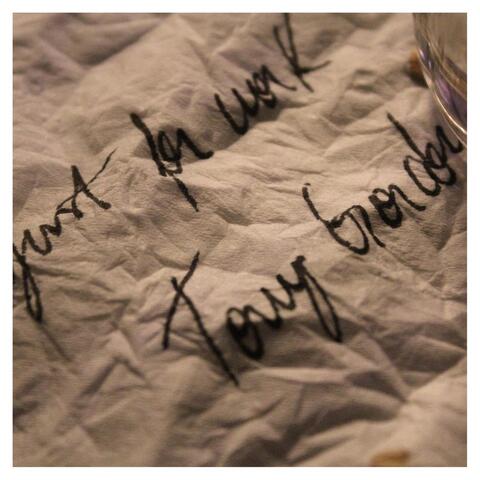 just for work
Tony Gordon